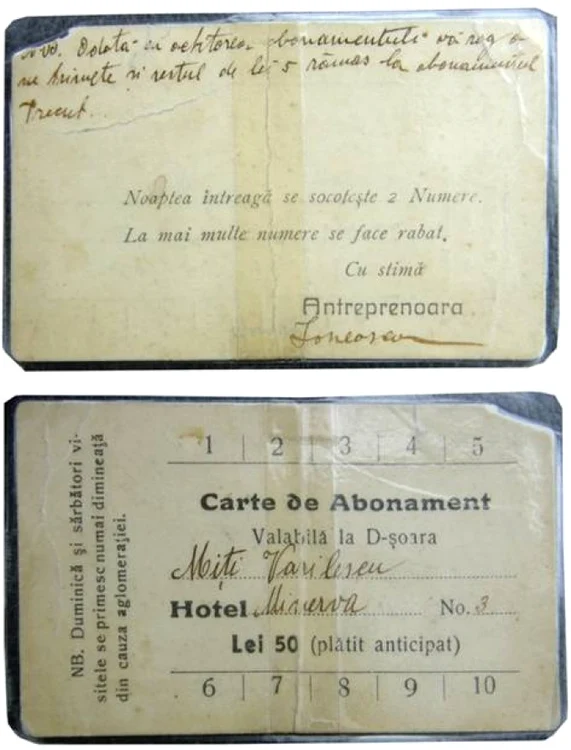 Odată cu achitarea abonamentului vă rog a
ne trimete și restul de lei 5 rămas la abonamentul
trecut.
Noaptea întreagă se socotește 2 Numere.
La mai multe numere se face rabat.
Cu stimă
Antreprenoara
Ionescu
NB. Duminică și sărbători vi-
sitele se primesc numai dimineață
din cauza aglomerației.
1 | 2 | 3 | 4 | 5
Carte de Abonament
Valabilă la D-șoara
Miți Vasilescu
Hotel Minerva No. 3
Lei 50 (plătit anticipat)
6 | 7 | 8 | 9 | 10